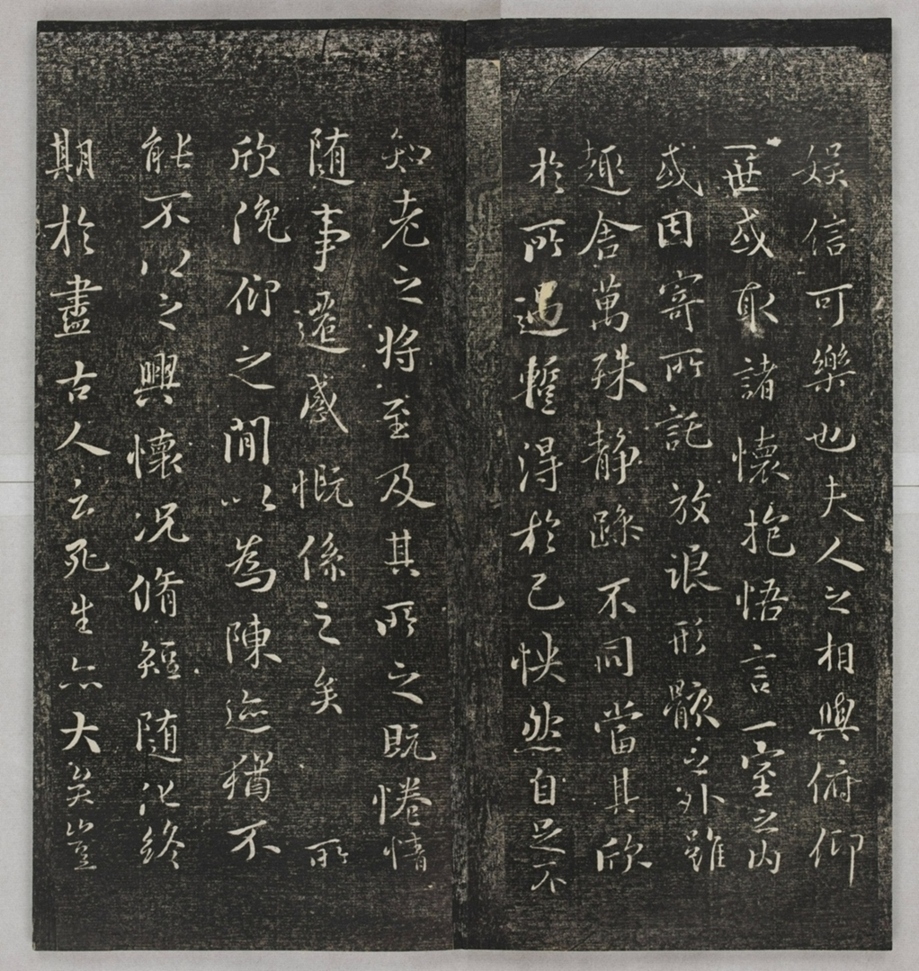 娛信可樂也夫人之相與俯仰
一世或取諸懷抱悟言一室之內
或因寄所託放浪形骸之外雖
趣舍萬殊静躁不同當其欣
於所遇暫得於己怏然自足不
知老之將至及其所之既惓情
随事遷感慨係之矣 所
欣俛仰之閒以為陳迹猶不
能不以之興懷況脩短随化終
期於盡古人云死生亦大矣豈